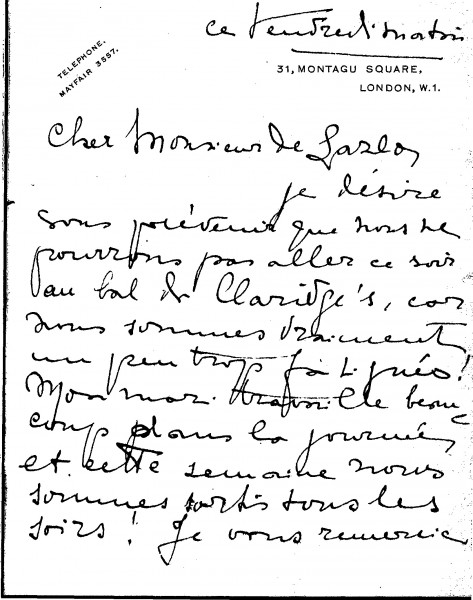 ce Vendredi matin
TELEPHONE.
MAYFAIR 3557.
31, MONTAGU SQUARE,
LONDON, W.1.
Cher Monsieur de Laszlo,
je désire
vous prévenir que nous ne
pourrons pas aller ce soir
au bal de Claridge's, car
nous sommes vraiment
un peu trop fatigués!
Mon mari travaille beau-
coup dans la journée,
et cette semaine nous
sommes sortis tous les
soirs! Je vous remercie